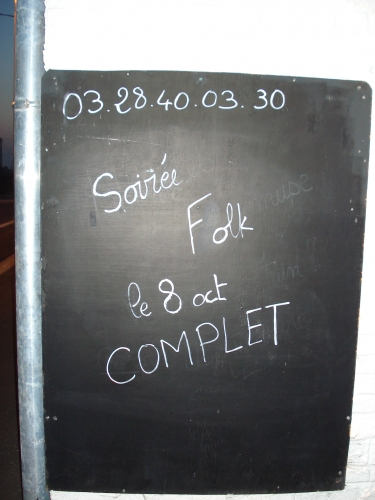 03.28.40.03.30
Soirée
Folk
le 8 oct
COMPLET